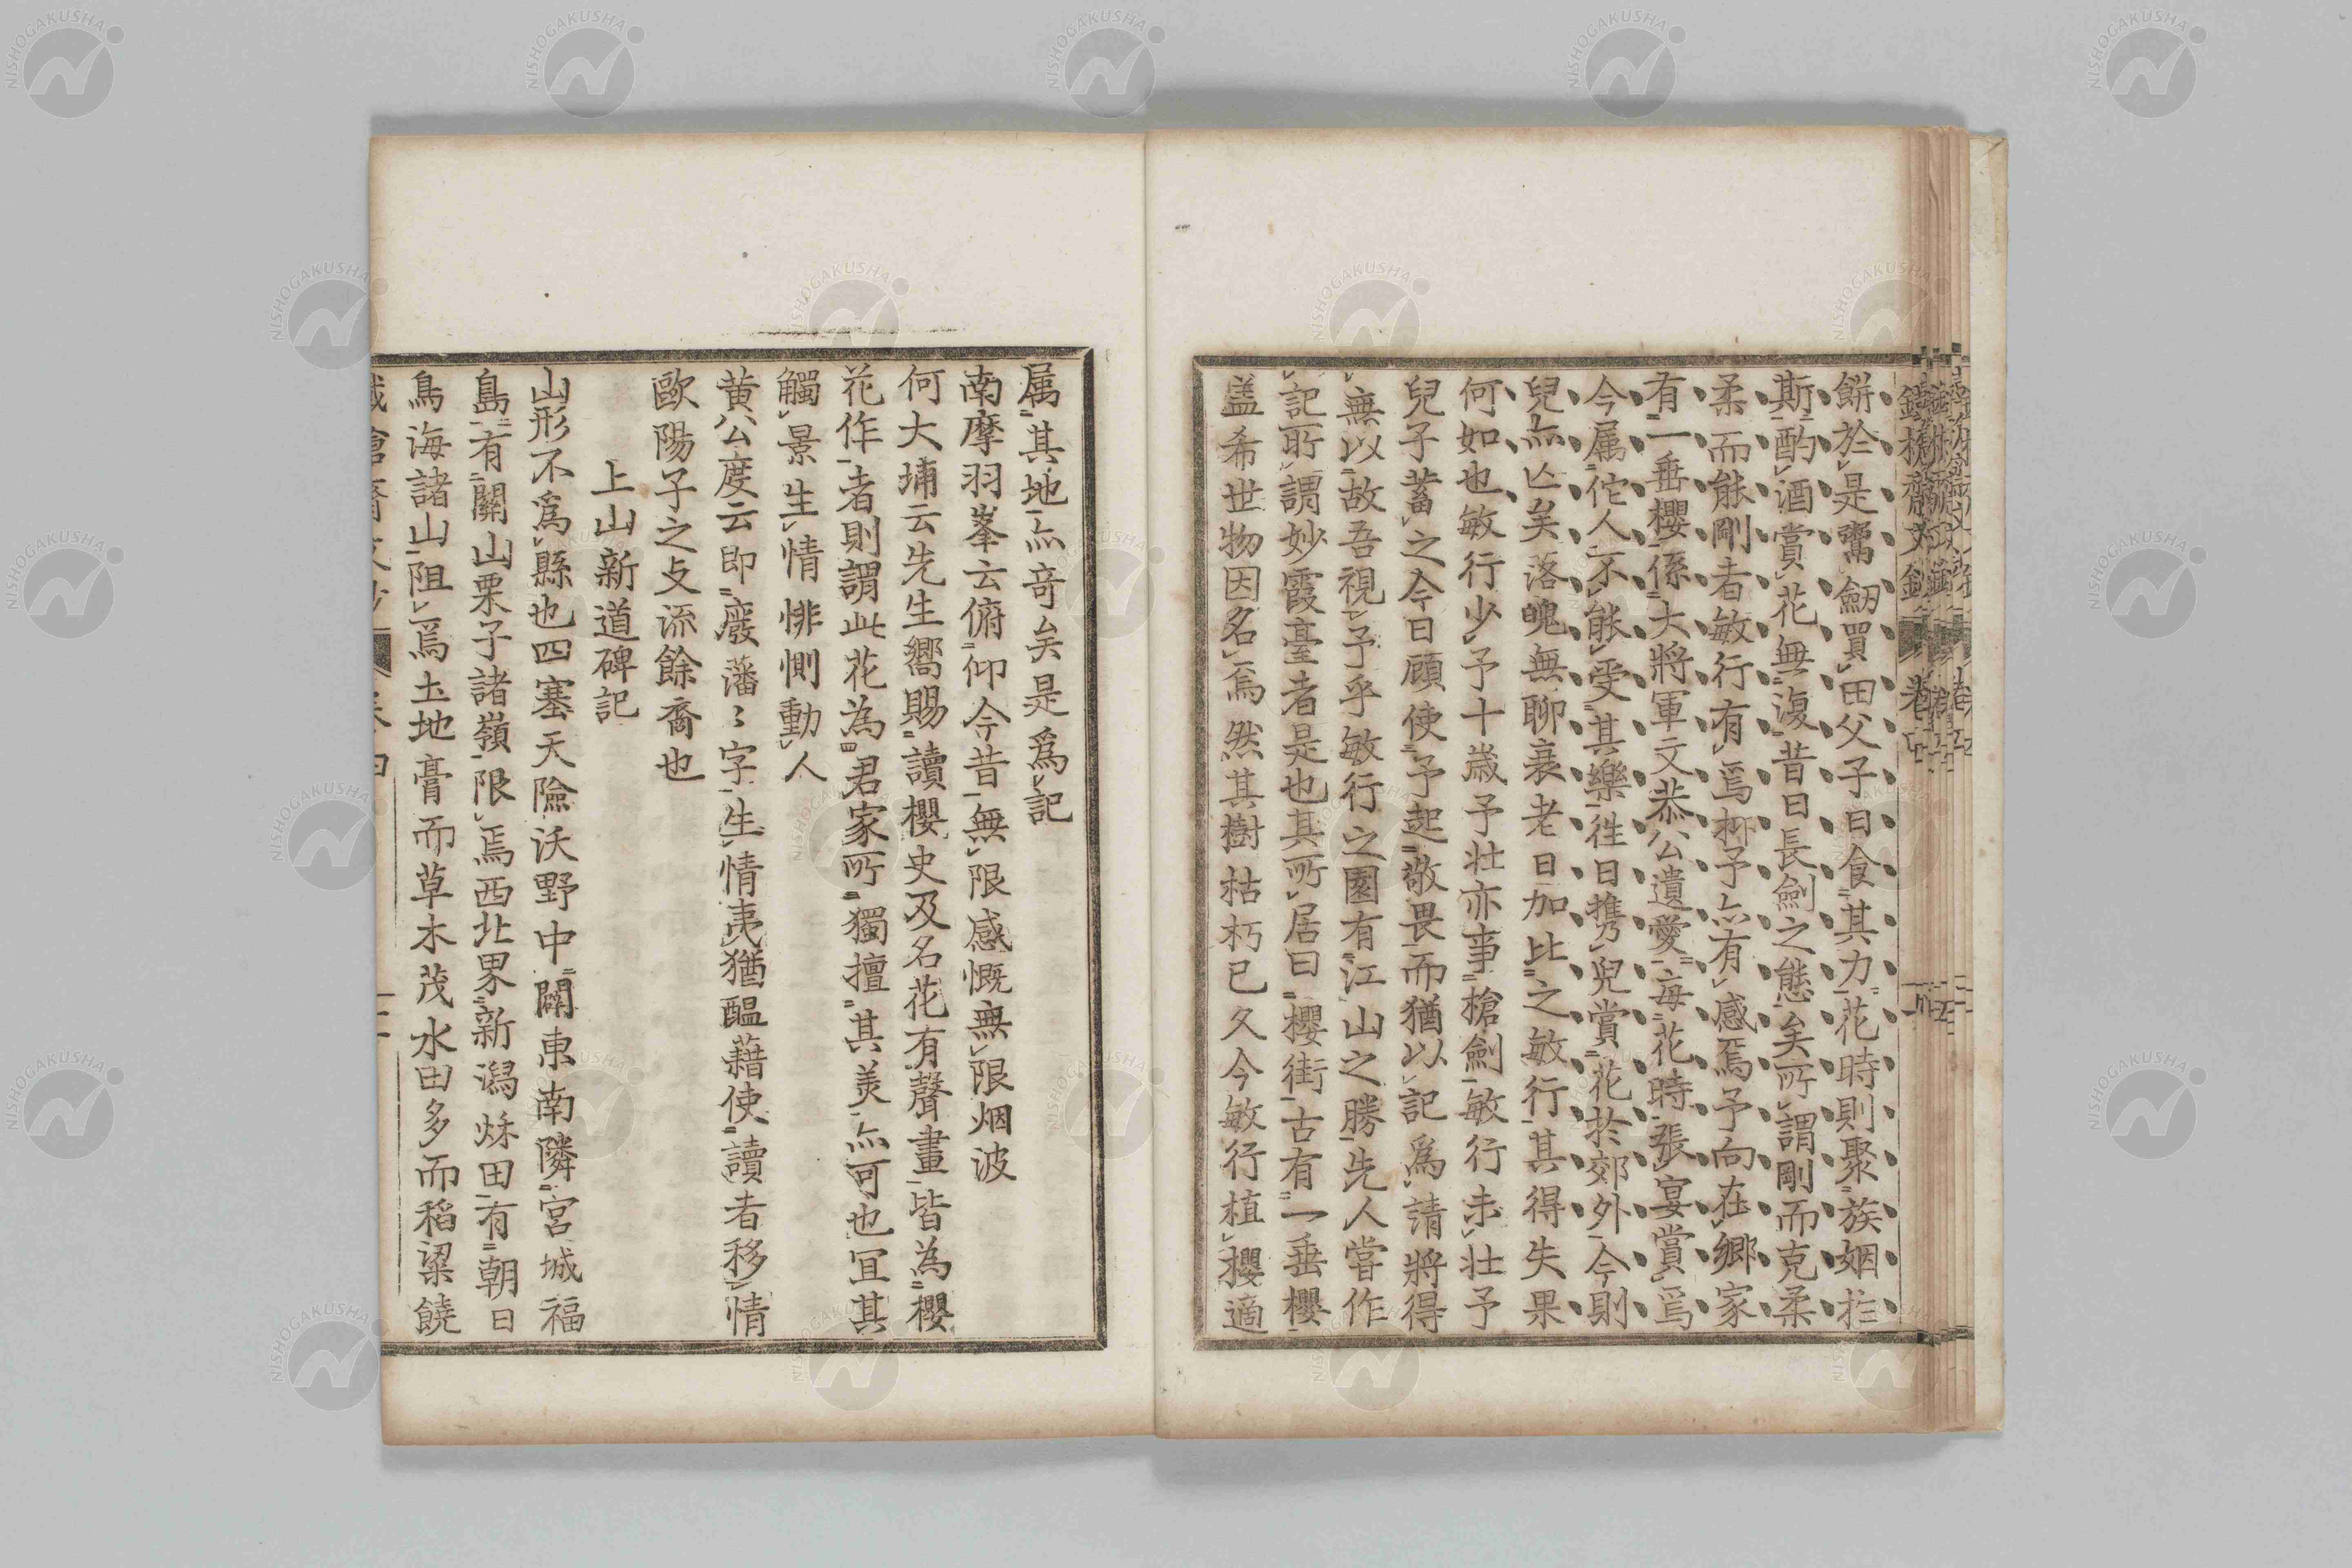 餅於是鬻劒買田父子日食其力花時則聚族姻於
斯酌酒賞花無復昔日長劍之態矣所謂剛而克柔
柔而能剛者敏行有焉抑予亦有感焉予向在鄉家
有一垂櫻係大將軍文恭公遺愛每花時張宴賞焉
今属佗人不能受其樂往日携兒賞花於郊外今則
兒亦亾矣落魄無聊衰老日加比之敏行其得失果
何如也敏行少予十歳予壮亦事槍劍敏行未壮予
兒子蓄之今日顧使予起敬畏而猶以記為請將得
無以故吾視予乎敏行之園有江山之勝先人嘗作
記所謂妙霞臺者是也其所居曰櫻街古有一垂櫻
盖希世物因名焉然其樹枯朽已久今敏行植櫻適
属其地亦奇矣是爲記
南摩羽峯云俯仰今昔無限感慨無限烟波
何大埔云先生嚮賜讀櫻史及名花有聲畫皆為櫻
花作者則謂此花為君家所獨擅其美亦可也冝其
觸景生情悱惻動人
黄公度云即廢藩〻字生情夷猶醞藉使讀者移情
歐陽子之文流餘裔也
上山新道碑記
山形不爲縣也四塞天險沃野中闢東南隣宮城福
島有關山栗子諸嶺限焉西北界新潟秌田有朝日
鳥海諸山阻焉土地膏而草木茂水田多而稻粱饒